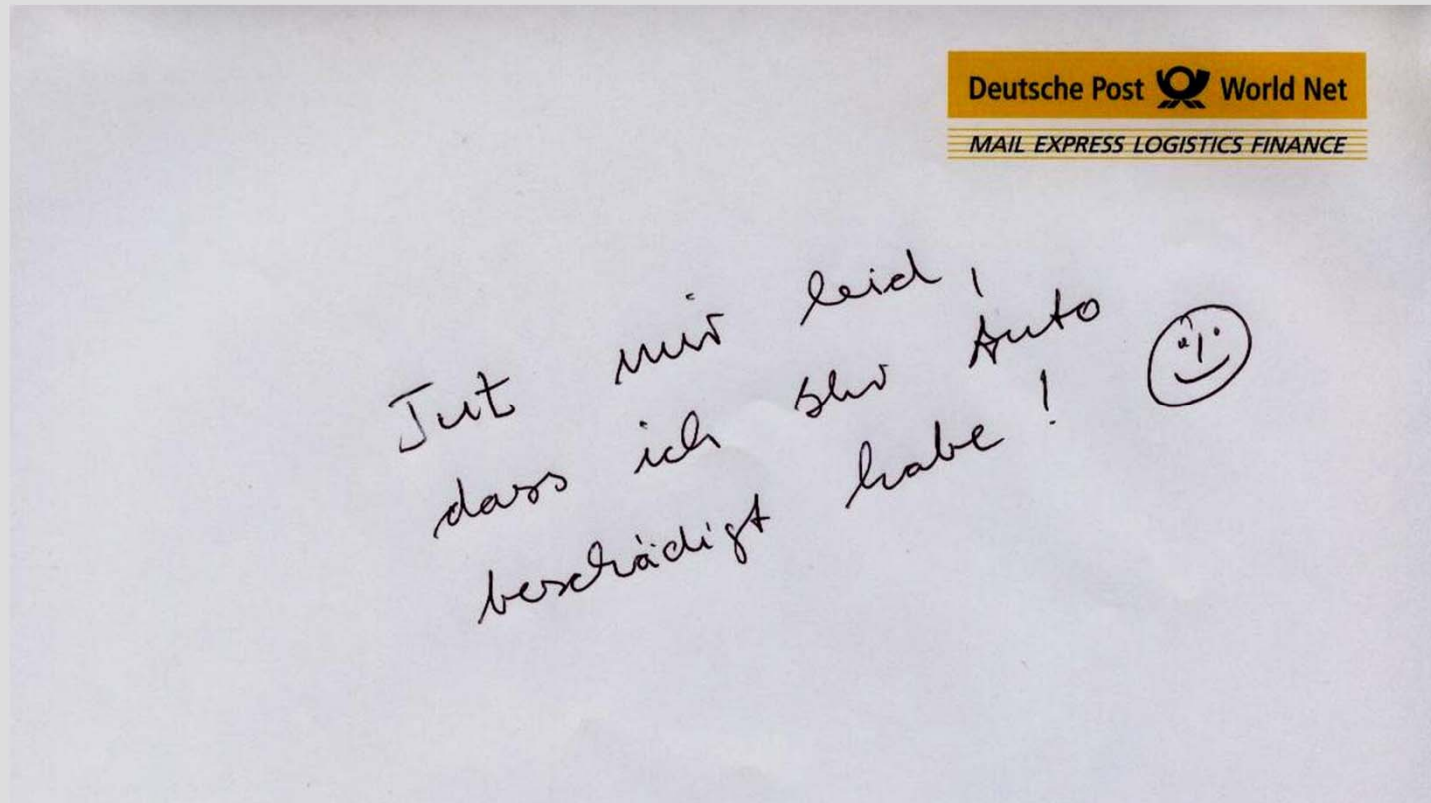 Deutsche Post World Net
MAIL EXPRESS LOGISTICS FINANCE
Tut mir leid,
dass ich Ihr Auto
beschädigt habe!